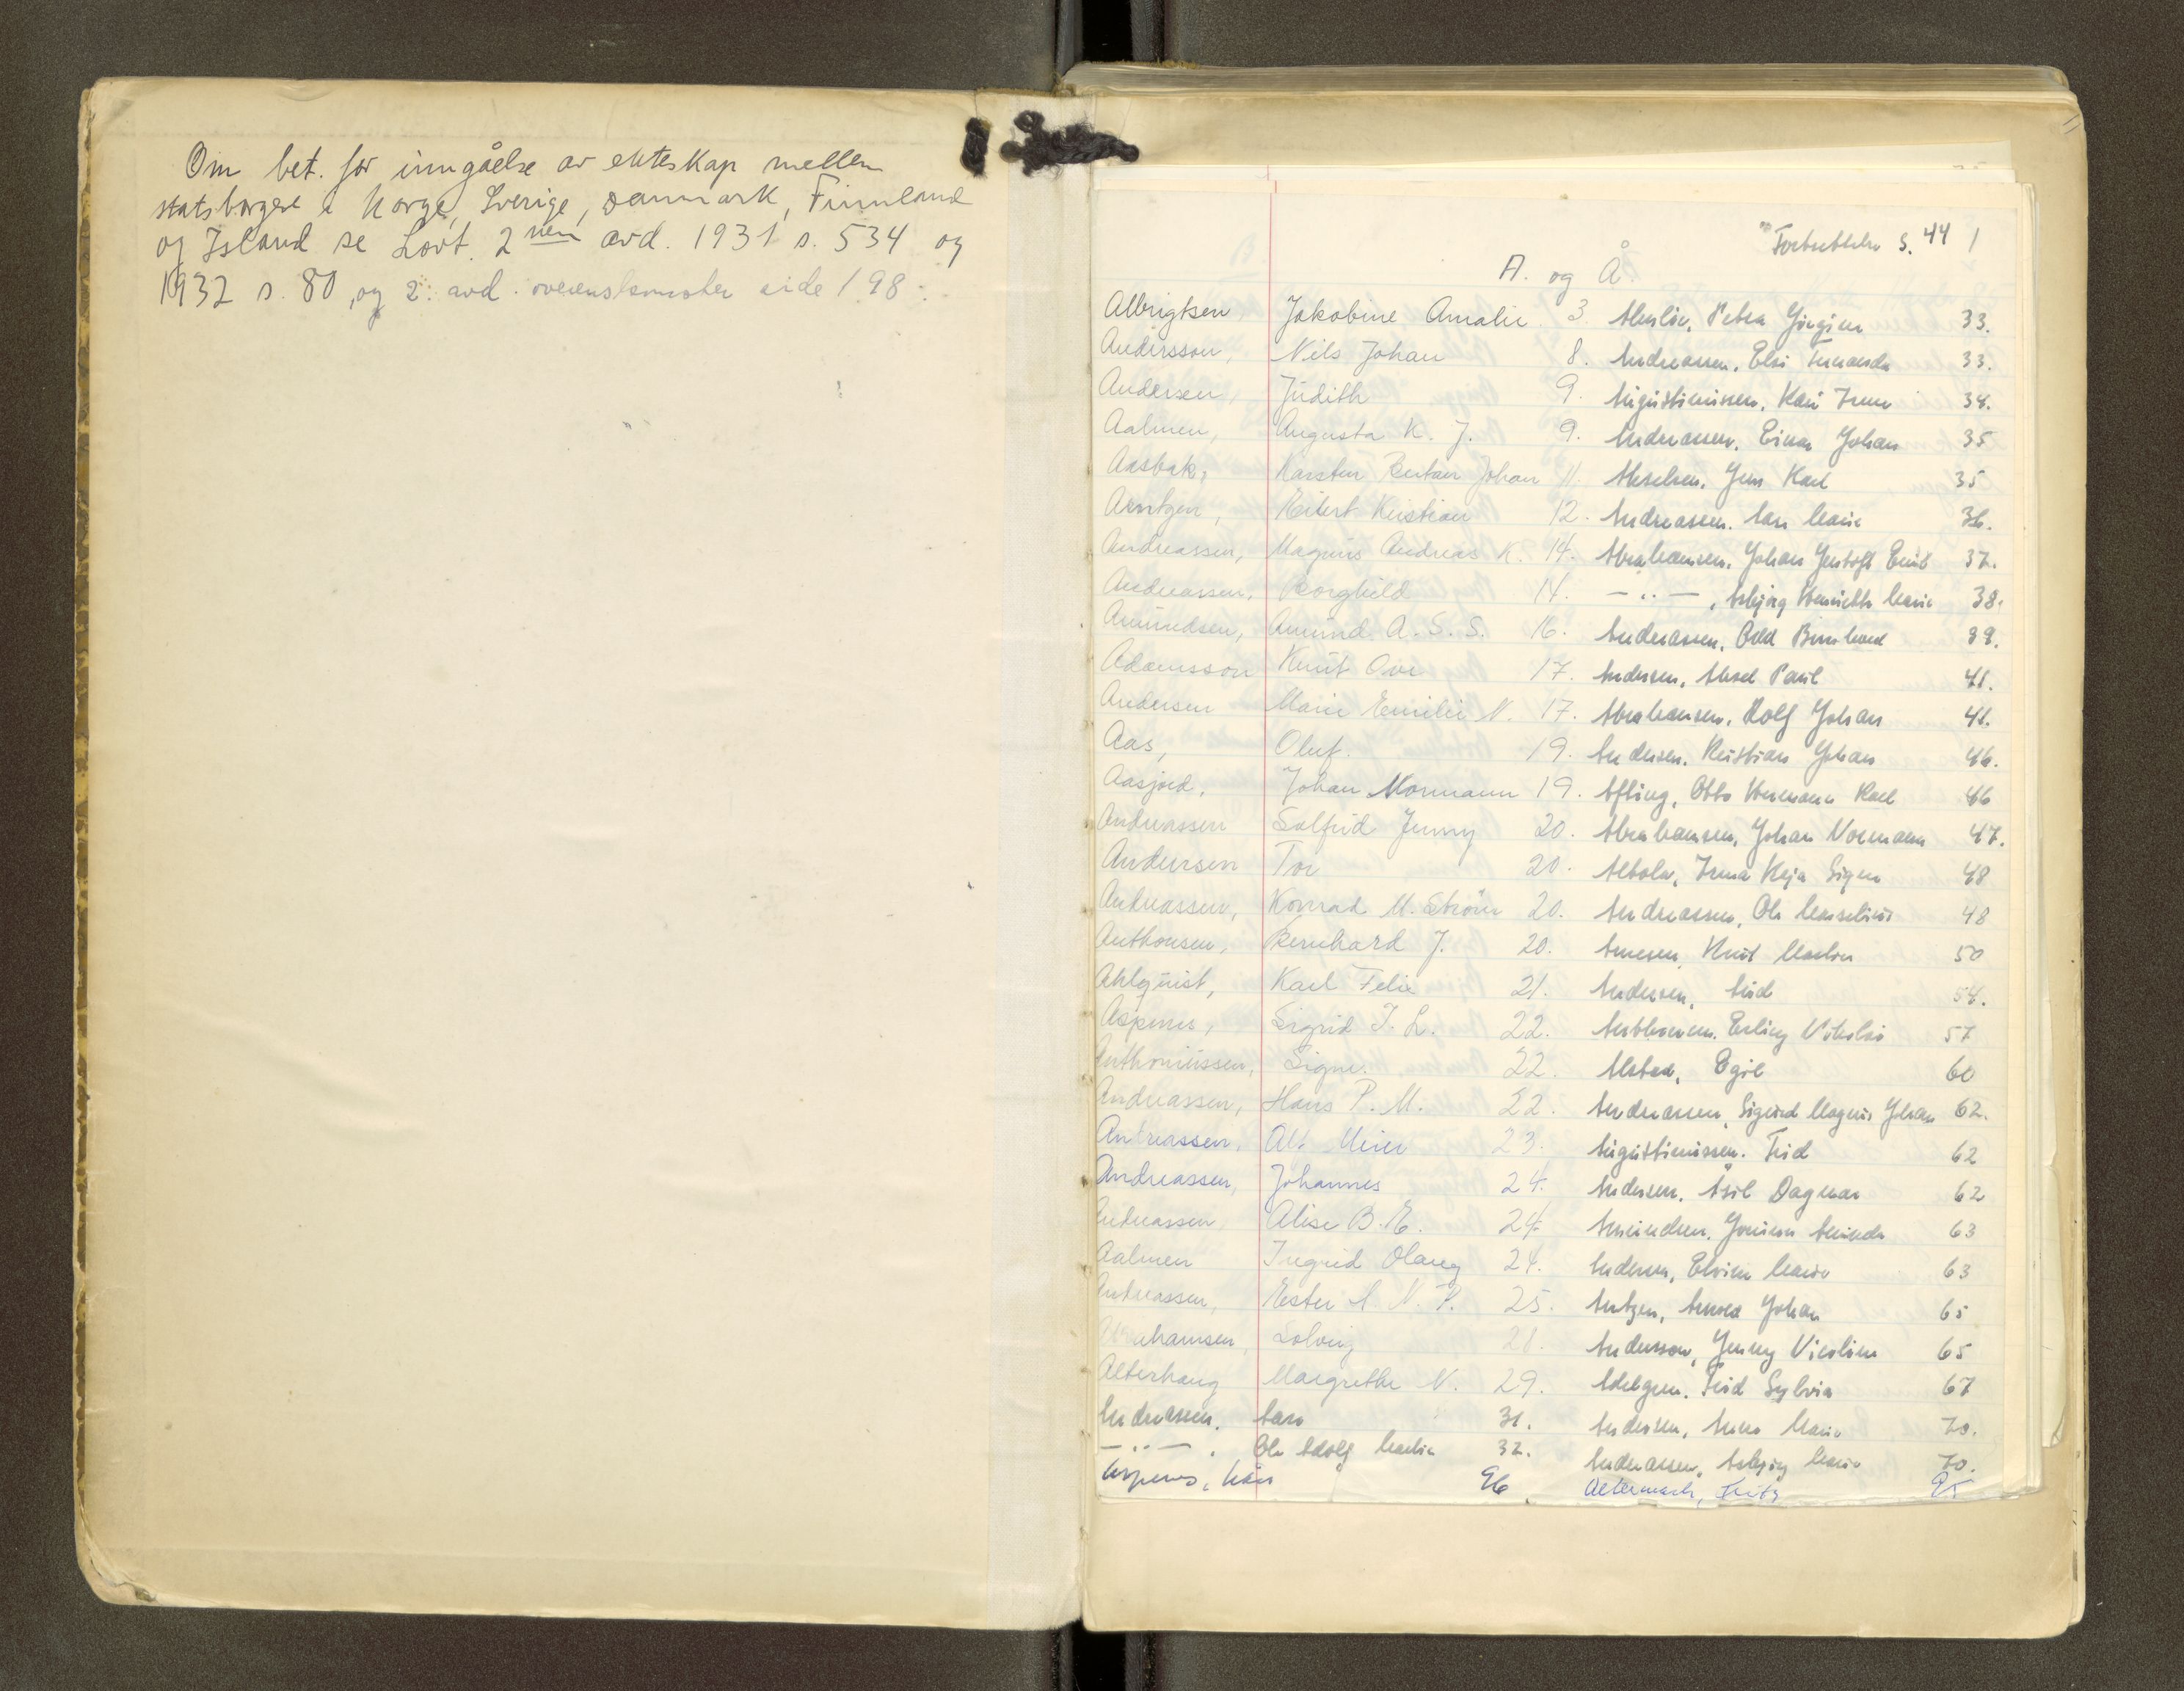 Om bet. for inngåelse av ekteskap mellem
statsborgere i Norge, Sverige, Danmark, Finnland
og Island se Lovt. 2nen avd. 1931 s. 534 og
1932 s. 80, og 2. avd. overenskomster side 198.
Fortsettelse s. 44 1
A. og Å.
Albrigtsen, Jakobine Amalie 3.
Andersson, Nils Johan 8.
Andersen, Judith 9.
Aalmen, Augusta K. J. 9.
Aasbak, Karsten Johan 11.
Arntzen, Kristian 12.
Andreassen, Magnus Andreas K. 14.
Andreassen, Borghild 14.
Amundsen, Amund A. S. S. 16.
Adamsson Knut Ove 17.
Andersen Marie Emilie N. 17.
Aas, Oluf. 19.
Aasjord, Johan Normann 19.
Andreassen Solfrid Jenny 20.
Andersen Tor 20.
Andreassen, Konrad M. Ström 20.
Anthonsen, Bernhard J. 20.
Ahlquist, Karl Felix 21.
Aspenes, Sigrid J. L. 22.
Anthoniussen, Signe. 22.
Andreassen, Hans P. M. 22.
Andreassen, Alf Meier 23.
Andreassen, Johannes 24.
Andreassen Alise B. E. 24.
Aalmen Ingrid Olaug 24.
Andreassen, Ester A. N. P. 25.
Abrahamsen, Solveig 28.
Alterhaug Margrethe N. 29.
Andreassen, Aase 31.
— ·· — . Ole Adolf Martin 32.
Aspenes, Kåre 96.
Petra 33.
Andreassen, Elsi Fernanda 33.
Augustinussen, Kari Irene 34.
Andreassen, Einar Johan 35
Akselsen, Jens Karl 35
Andreassen, Marie 36.
Abrahamsen, Johan Gustaft Emil 37.
— ·· — , Asbjørg Henriette Marie 38.
Andreassen, Odd Bernhard 39.
Andersen, Aksel Paul 41.
Abrahamsen, Rolf Johan 41.
Andersen, Kristian Johan 46.
Otto Hermann Karl 46
Abrahamsen, Johan Normann 47.
Irma Signe 48
Andreassen, Ole Marselius 48
Arnesen, Knut Martin 50
Andersen, Aud 54.
Anthonsen, Erling Nikolai 57
Alstad, Egil 60
Andreassen, Sigurd Magnus Johan 62.
Augustinussen, Frid 62
Andersen, Åsil Dagmar 62
Amundsen, Amanda 63
Andersen, Elvine Marie 63
Arntzen, Arnold Johan 65
Andersson, Jenny Nicoline 65
Sylvia 67
Andersen, Anna Marie 70.
Andreassen, Asbjørg Marie 70.
Altermark, Fritz 95